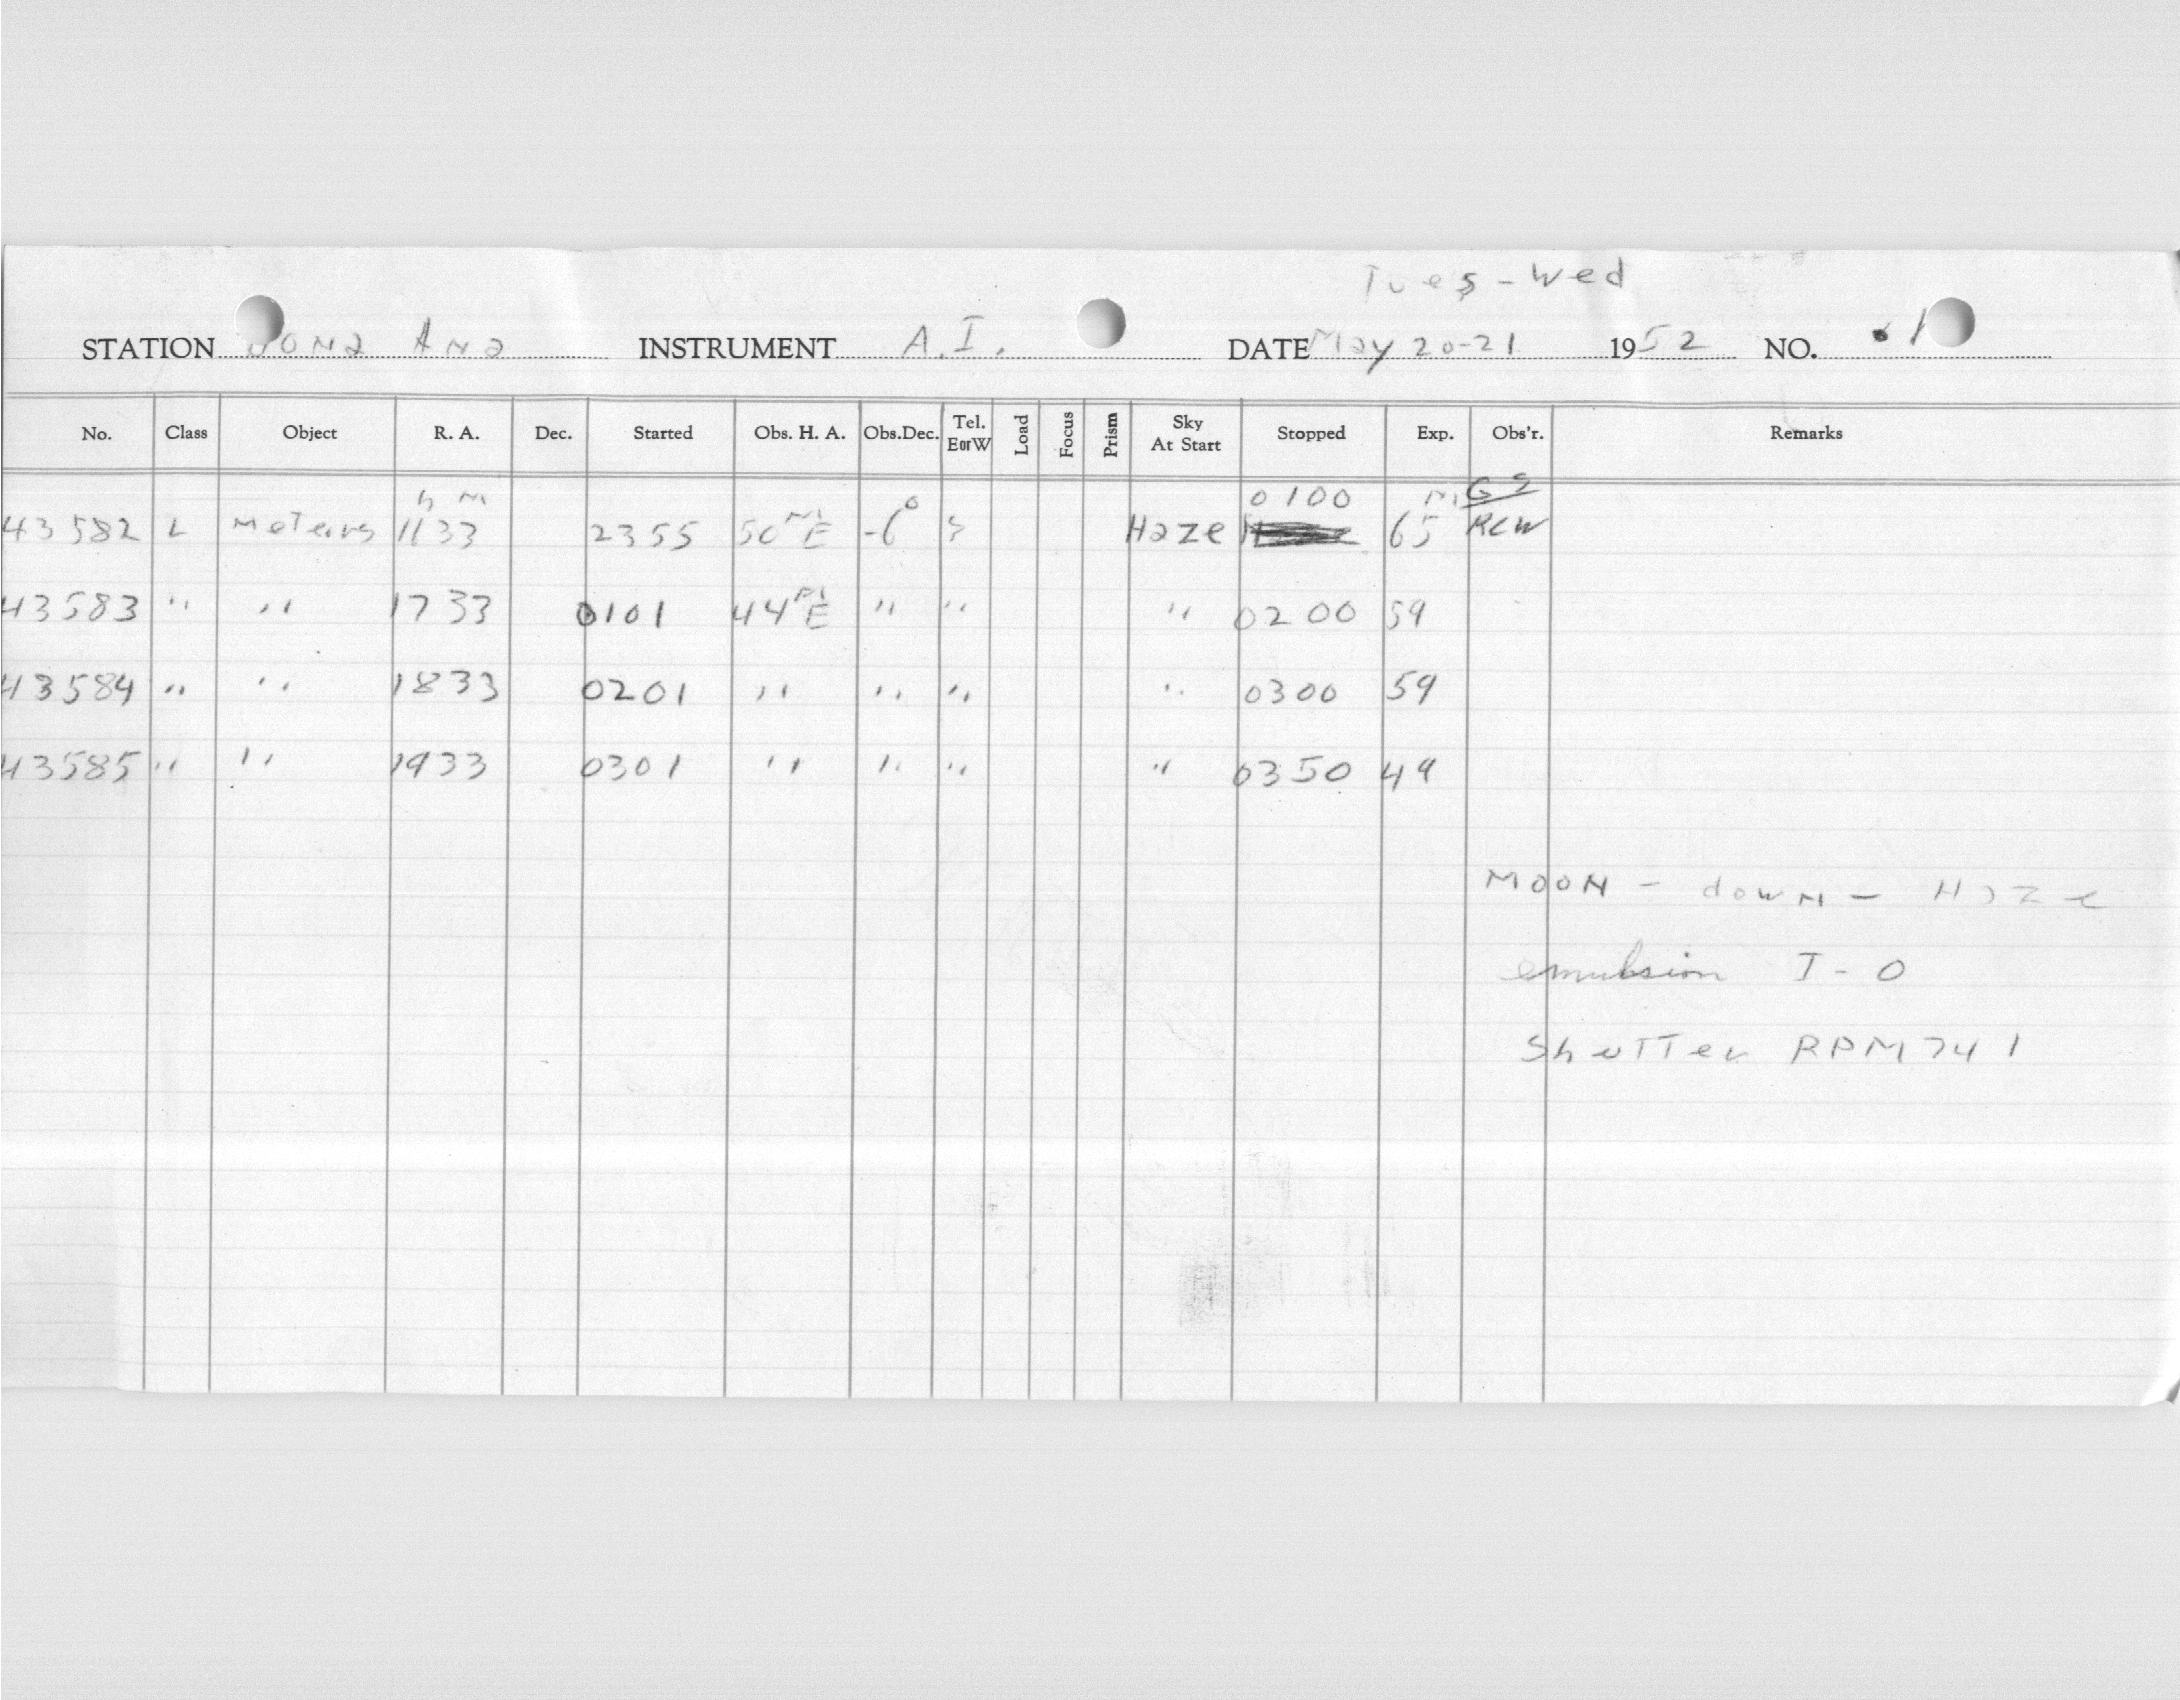 Tues - Wed
STATION Dona Ana INSTRUMENT A.I. DATE May 20-21 1952 NO. 1
No. Class Object R. A. Dec. Started Obs. H. A. Obs.Dec. Tel. E or W Load Focus Prism Sky At Start Stopped Exp. Obs'r. Remarks
h m 0100 m GS
43582 L Meteors 1133 2355 50 m E -6° Haze 65 RCW
43583 " " 1733 0101 44 m E " " " 0200 59
43584 " " 1833 0201 " " " " 0300 59
43585 " " 1933 0301 " " " " 0350 49
Moon - down - Haze
emulsion I-O
Shutter RPM 741